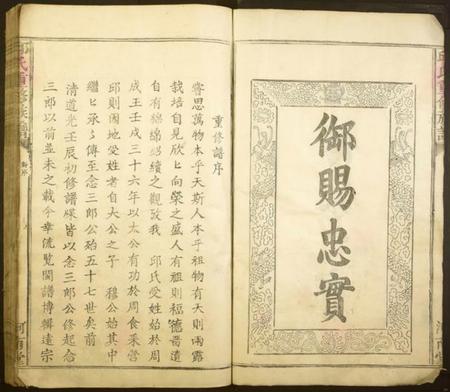 御賜忠實
重修譜序
嘗思萬物本乎天斯人本乎祖物有天則雨露
栽培自見欣匕向榮之盛人有祖則福德蓄遺
自有綿綿紹續之觀致我 邱氏受姓始於周
成王壬戌三十六年以太公有功於周食采營
邱則因地受姓者自太公之子 穆公始其中
繼匕承乡傳至念三郎公始五十七世矣前
清道光壬辰初修譜牒皆以念三郎公修起念
三郎以前並未之載今幸流覽閩譜博輯遠宗
邱氏重修族譜
河南堂
邱氏重修族譜
河南堂